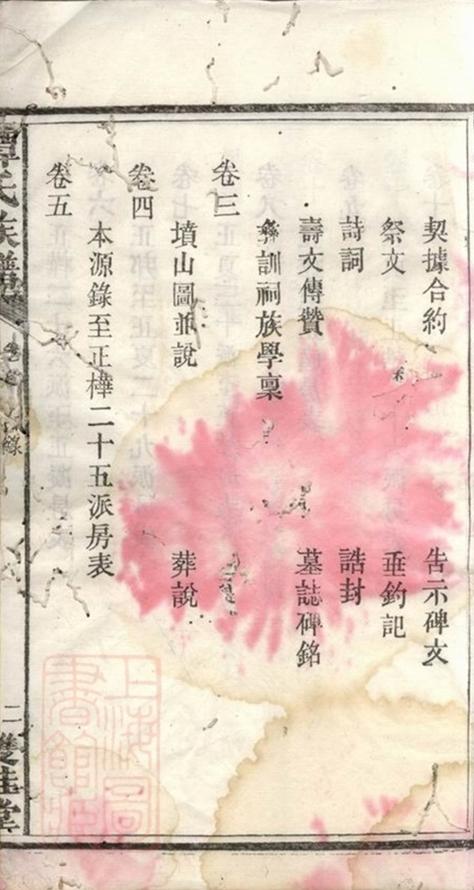 契據合約 告示碑文
祭文 垂釣記
詩詞 誥封
壽文傳贊 墓誌碑銘
彝訓祠族學稟
卷三
墳山圖並說 葬說
卷四
本源錄至正樺二十五派房表
卷五
譚氏族譜 卷首 目錄 二 雙桂堂
上海圖書館藏